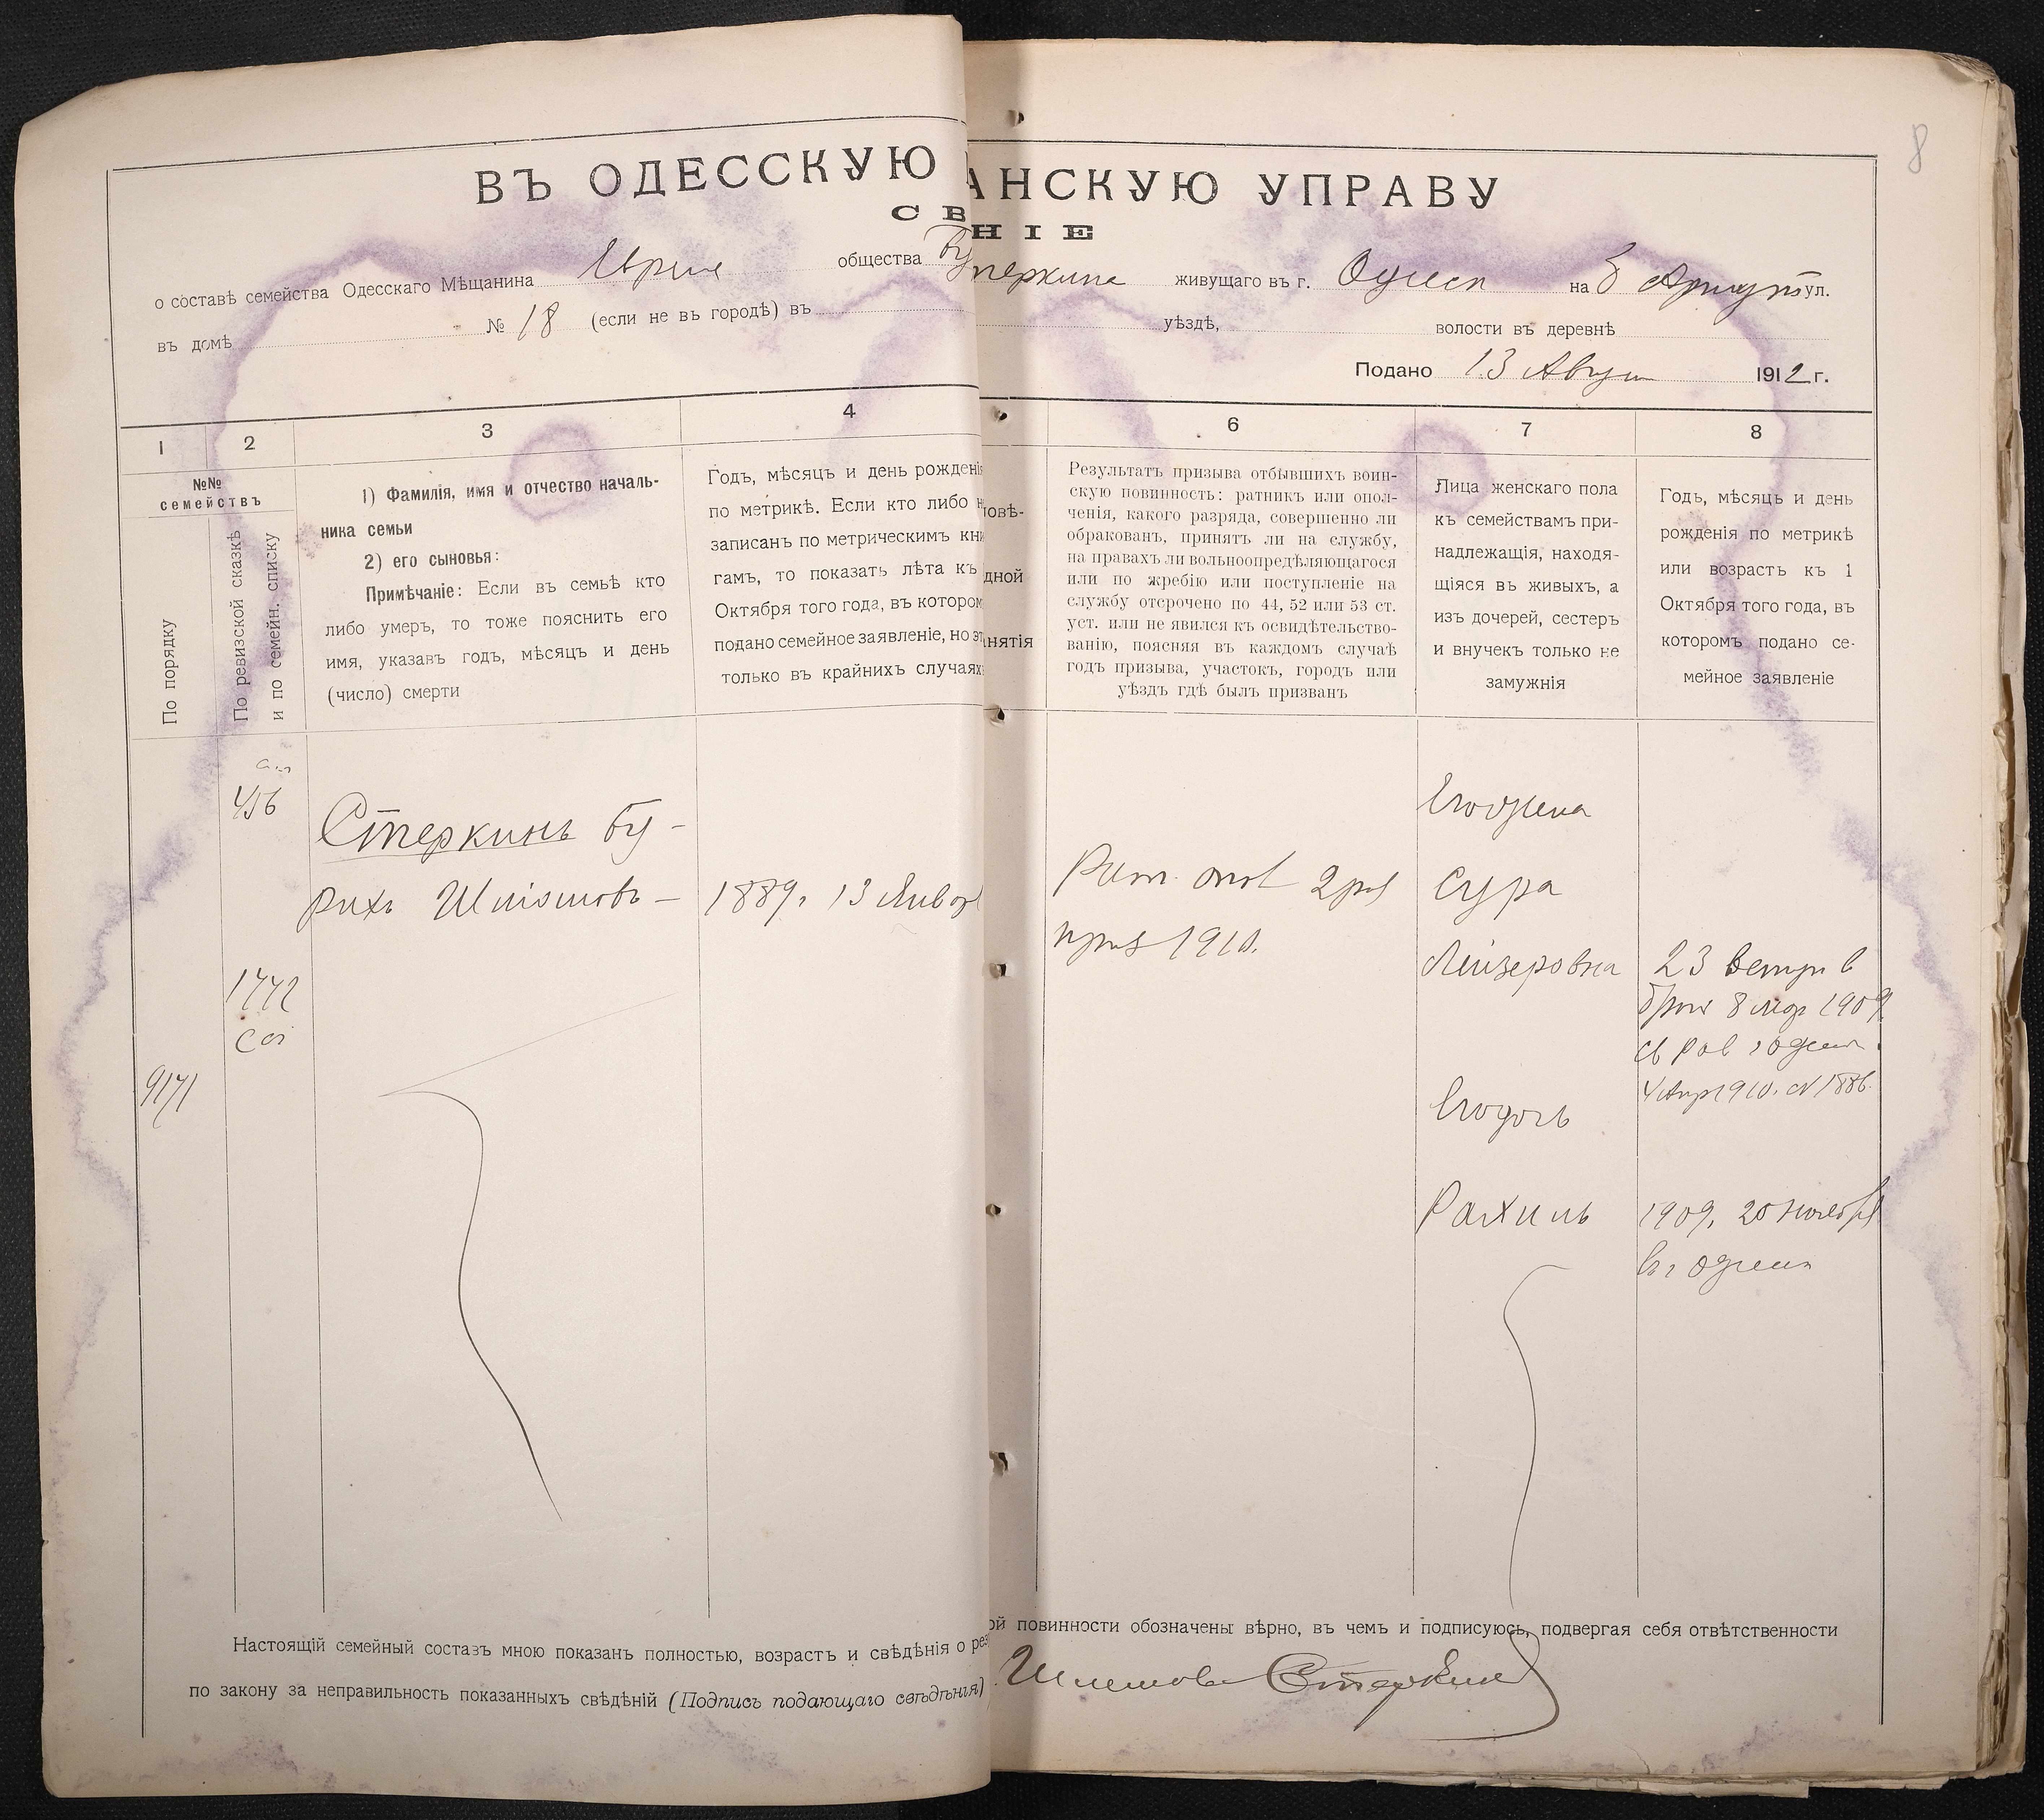 8
ВЪ ОДЕССКУЮ
АНСКУЮ УПРАВУ
СВ
НІЕ
о составѣ семейства Одесскаго Мѣщанина
общества Бу
теркина живущаго въ г. Одессѣ на Б Арнаут ул.
въ домѣ № 18 (если не въ городѣ) въ
уѣздѣ, волости въ деревнѣ
Подано 13 Август 1912 г.
1 2 3 4
6 7 8
№№ семействъ
По порядку
По ревизской сказкѣ
и по семейн. списку
1) Фамилія, имя и отчество началь-
ника семьи
2) его сыновья:
Примѣчаніе: Если въ семьѣ кто
либо умеръ, то тоже пояснить его
имя, указавъ годъ, мѣсяцъ и день
(число) смерти
Годъ, мѣсяцъ и день рожденія
по метрикѣ. Если кто либо н
записанъ по метрическимъ кни
гамъ, то показать лѣта къ
Октября того года, въ котором
подано семейное заявленіе, но эт
только въ крайнихъ случаях
повѣ-
дной
нятія
Результатъ призыва отбывшихъ воин-
скую повинность: ратникъ или опол-
ченія, какого разряда, совершенно ли
обракованъ, принятъ ли на службу,
на правахъ ли вольноопредѣляющагося
или по жребію или поступленіе на
службу отсрочено по 44, 52 или 53 ст.
уст. или не явился къ освидѣтельство-
ванію, поясняя въ каждомъ случаѣ
годъ призыва, участокъ, городъ или
уѣздъ гдѣ былъ призванъ
Лица женскаго пола
къ семействамъ при-
надлежащія, находя-
щіяся въ живыхъ, а
изъ дочерей, сестеръ
и внучекъ только не
замужнія
Годъ, мѣсяцъ и день
рожденія по метрикѣ
или возрастъ къ 1
Октября того года, въ
которомъ подано се-
мейное заявленіе
456
Стеркинъ Бу-
рихъ Шлiомовъ –
1889. 13 Январ
Рат. опол 2 раз
приз 1910.
Его жена
Сура
Лейзеровна
23
8 мар 1909
4 Апр 1910. № 1886.
1772
9171
Его дочь
Рахиль
1909. 20 ноября
въ г Одессѣ
Настоящій семейный составъ мною показанъ полностью, возрастъ и свѣдѣнія о рез
ой повинности обозначены вѣрно, въ чемъ и подписуюсь, подвергая себя отвѣтственности
по закону за неправильность показанныхъ свѣдѣній (Подпись подающаго свѣдѣнія)
Шлемова Стеркин